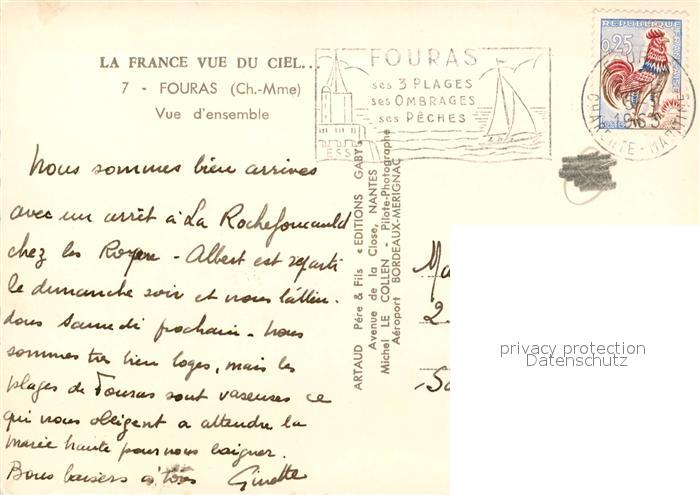 LA FRANCE VUE DU CIEL...
7 - FOURAS (Ch.-Mme)
Vue d'ensemble
FOURAS
ses 3 PLAGES
ses OMBRAGES
ses PÊCHES
ESSI
REPUBLIQUE
0,25
1963
CHARENTE-MARITIME
Nous sommes bien arrives
avec un arrêt à La Rochefoucauld
chez les - Albert est reparti
le dimanche soir et nous l'atten-
dons samedi prochain - Nous
sommes tres bien loges, mais les
plages de Fouras sont vaseuses ce
qui nous obligent a attendre la
marée haute pour nous baigner.
Bons baisers à tous Ginette
ARTAUD Père & Fils «EDITIONS GABY»
Avenue de la Close, NANTES
Michel LE COLLEN - Pilote-Photographe
Aéroport BORDEAUX-MERIGNAC
Ma
2
privacy protection
Datenschutz